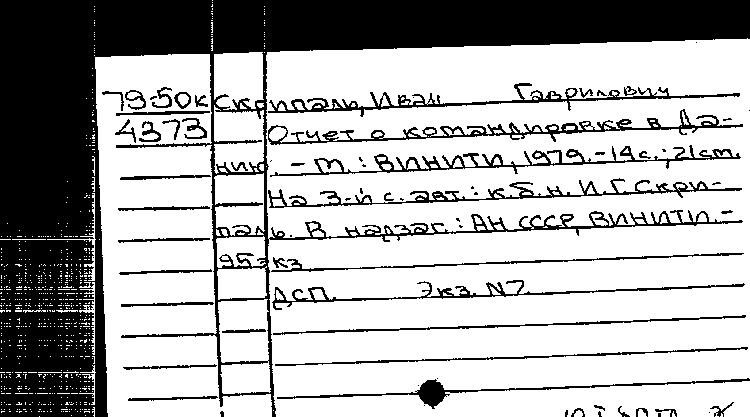 79-50к Скрипаль, Иван Гаврилович
4373 Отчет о командировке в Да-
нию. - М.: ВИНИТИ, 1979. - 14 с.; 21 см.
На 3-й с. авт.: к.б.н. И.Г. Скри-
паль. В надзаг.: АН СССР, ВИНИТИ. -
95 экз
ДСП. Экз. N7